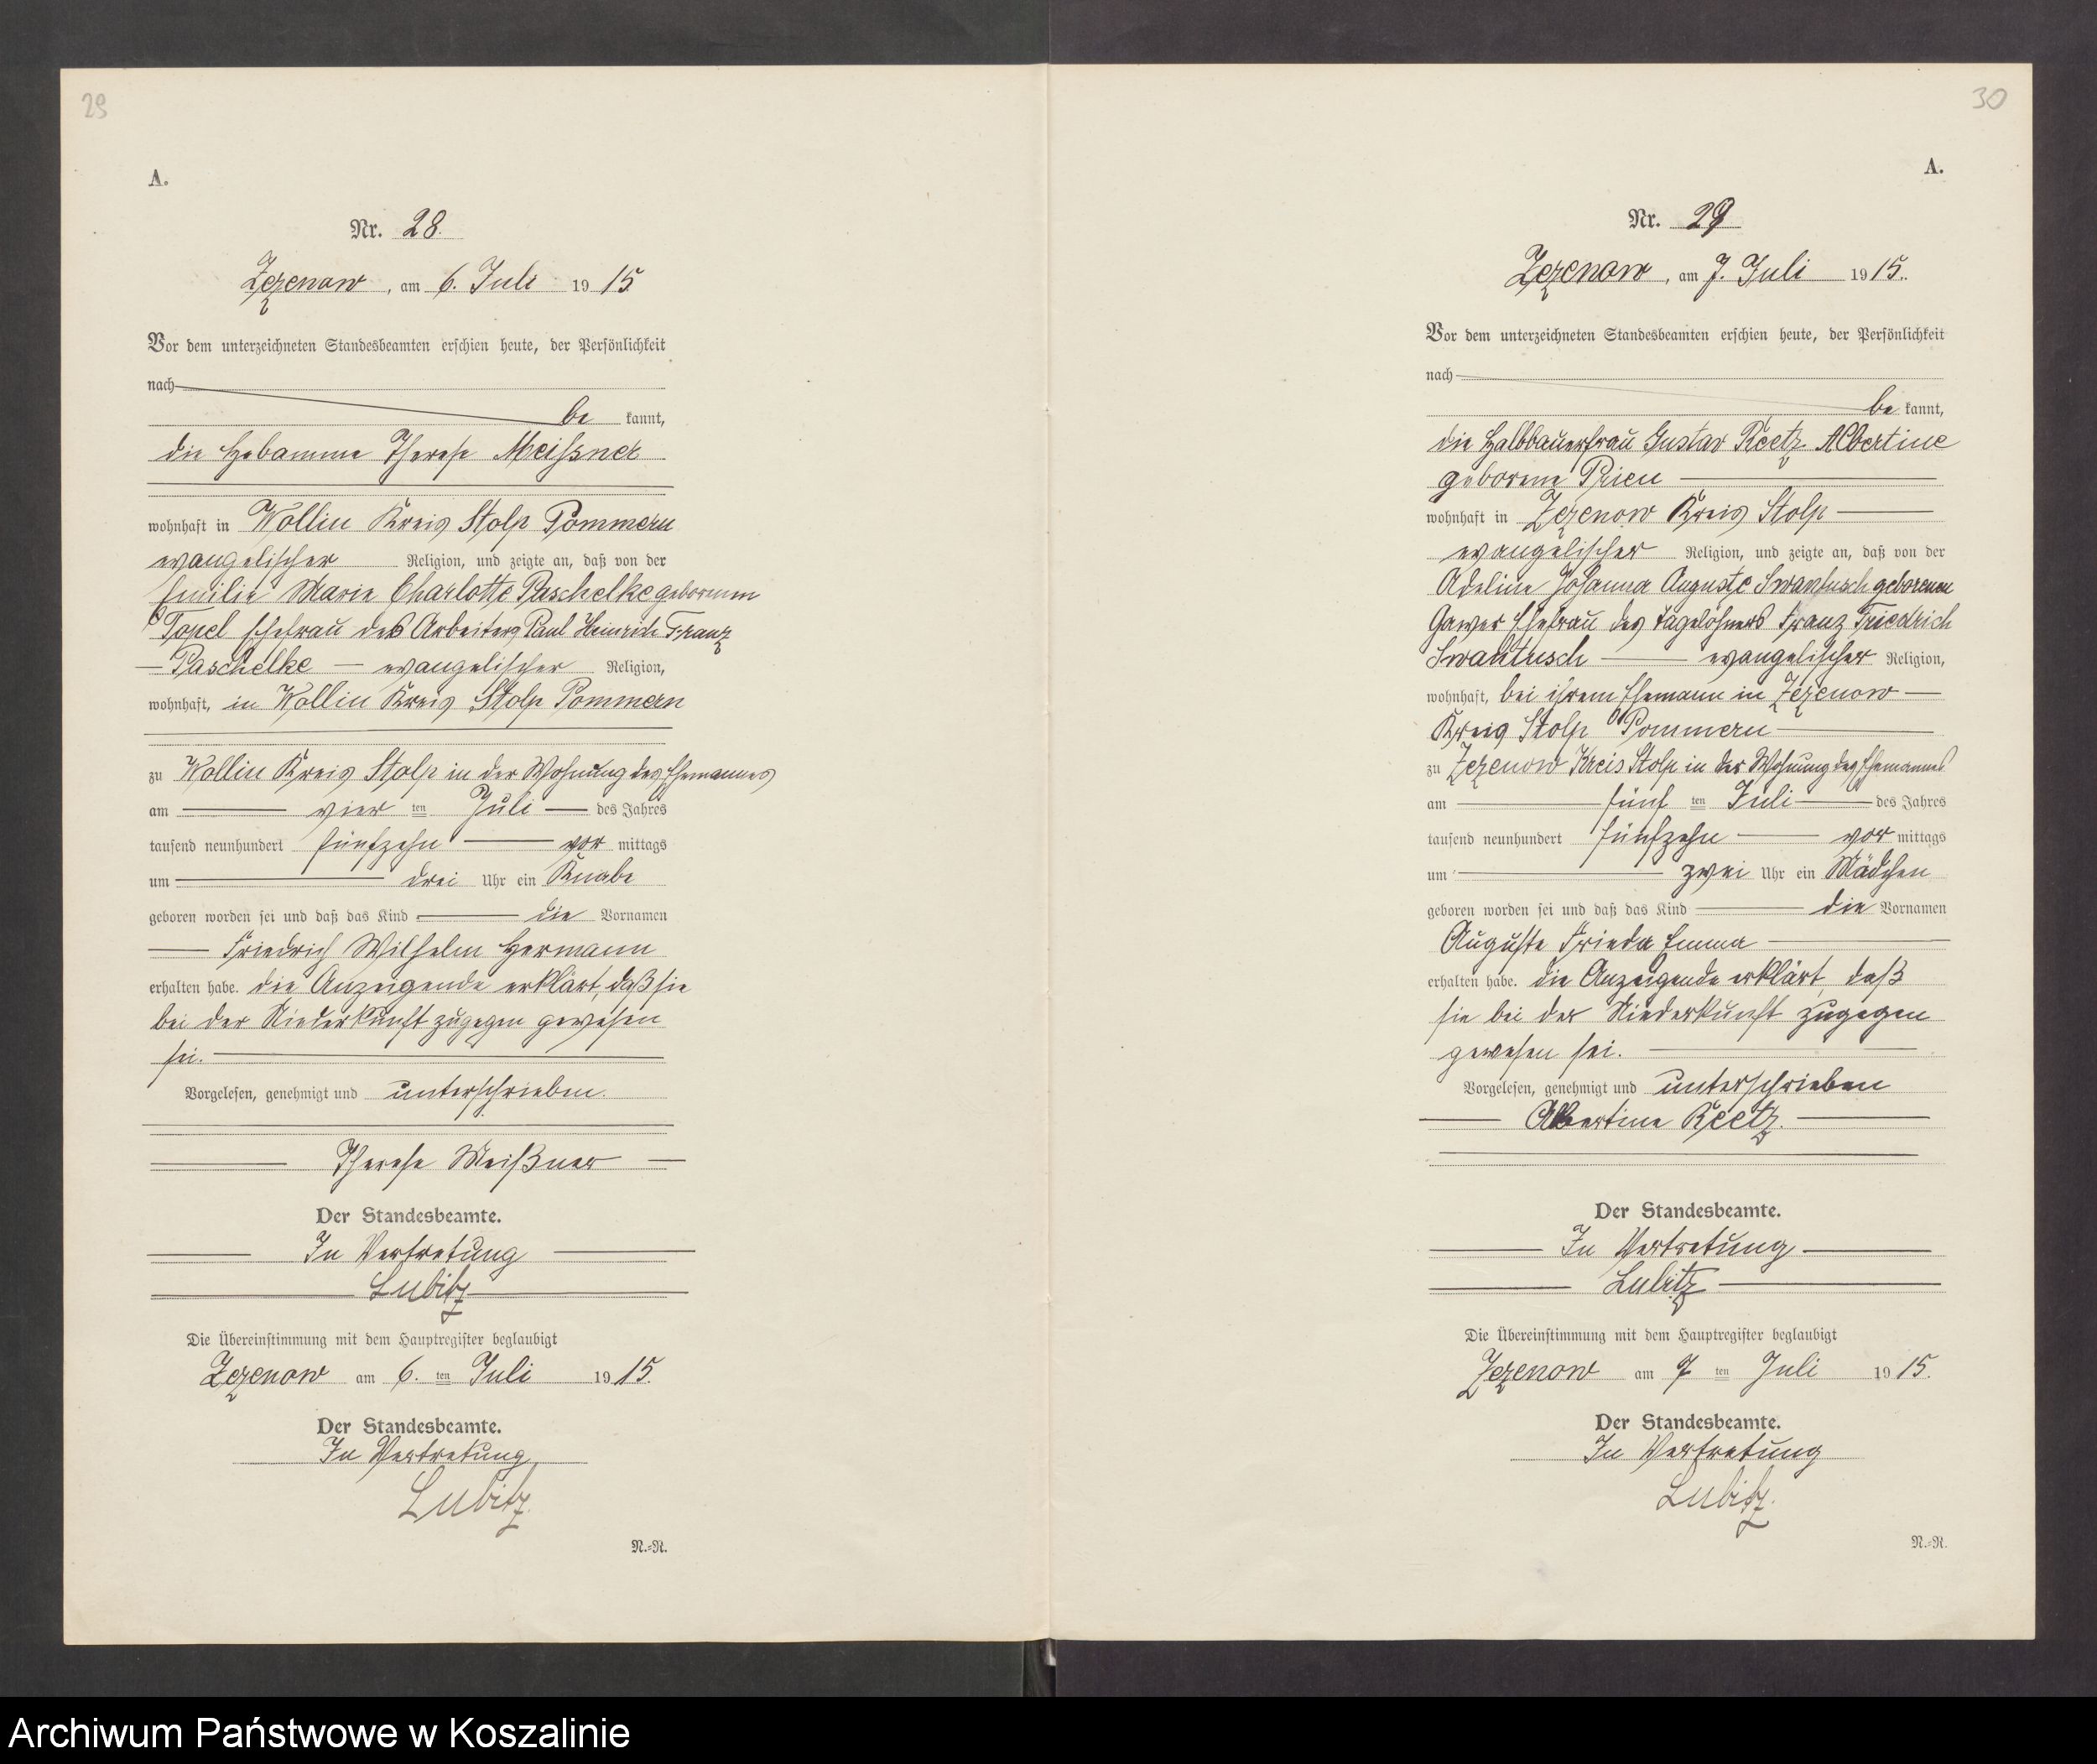 29
A.
Nr. 28.
Zezenow, am 6. Juli 1915.
Vor dem unterzeichneten Standesbeamten erschien heute, der Persönlichkeit
nach
be kannt,
die Hebamme Therese Meißner
wohnhaft in Wollin Kreis Stolp Pommern
evangelischer Religion, und zeigte an, daß von der
Emilie Marie Charlotte Paschelke geborenen
Topel Ehefrau des Arbeiters Paul Heinrich Franz
Paschelke evangelischer Religion,
wohnhaft, in Wollin Kreis Stolp Pommern
zu Wollin Kreis Stolp in der Wohnung des Ehemannes
am vier ten Juli des Jahres
tausend neunhundert fünfzehn vor mittags
um drei Uhr ein Knabe
geboren worden sei und daß das Kind die Vornamen
Friedrich Wilhelm Hermann
erhalten habe. die Anzeigende erklärt, daß sie
bei der Niederkunft zugegen gewesen
sei.
Vorgelesen, genehmigt und unterschrieben.
Therese Meißner
Der Standesbeamte.
In Vertretung
Lubitz
Die Übereinstimmung mit dem Hauptregister beglaubigt
Zezenow am 6. ten Juli 1915.
Der Standesbeamte.
In Vertretung
Lubitz.
N.=R.
30
A.
Nr. 29
Zezenow, am 7. Juli 1915.
Vor dem unterzeichneten Standesbeamten erschien heute, der Persönlichkeit
nach
be kannt,
die Halbbauerfrau Gustav Reetz Albertine
geborene Prien
wohnhaft in Zezenow Kreis Stolp
evangelischer Religion, und zeigte an, daß von der
Adeline Johanna Auguste Swantusch geborenen
Gawer Ehefrau des Tagelöhners Franz Friedrich
Swantusch evangelischer Religion,
wohnhaft, bei ihrem Ehemann in Zezenow
Kreis Stolp Pommern
zu Zezenow Kreis Stolp in der Wohnung des Ehemannes
am fünf ten Juli des Jahres
tausend neunhundert fünfzehn vor mittags
um zwei Uhr ein Mädchen
geboren worden sei und daß das Kind die Vornamen
Auguste Frieda Emma
erhalten habe. die Anzeigende erklärt, daß
sie bei der Niederkunft zugegen
gewesen sei.
Vorgelesen, genehmigt und unterschrieben
Albertine Reetz.
Der Standesbeamte.
In Vertretung
Lubitz
Die Übereinstimmung mit dem Hauptregister beglaubigt
Zezenow am 7 ten Juli 1915.
Der Standesbeamte.
In Vertretung
Lubitz.
N.=R.
Archiwum Państwowe w Koszalinie